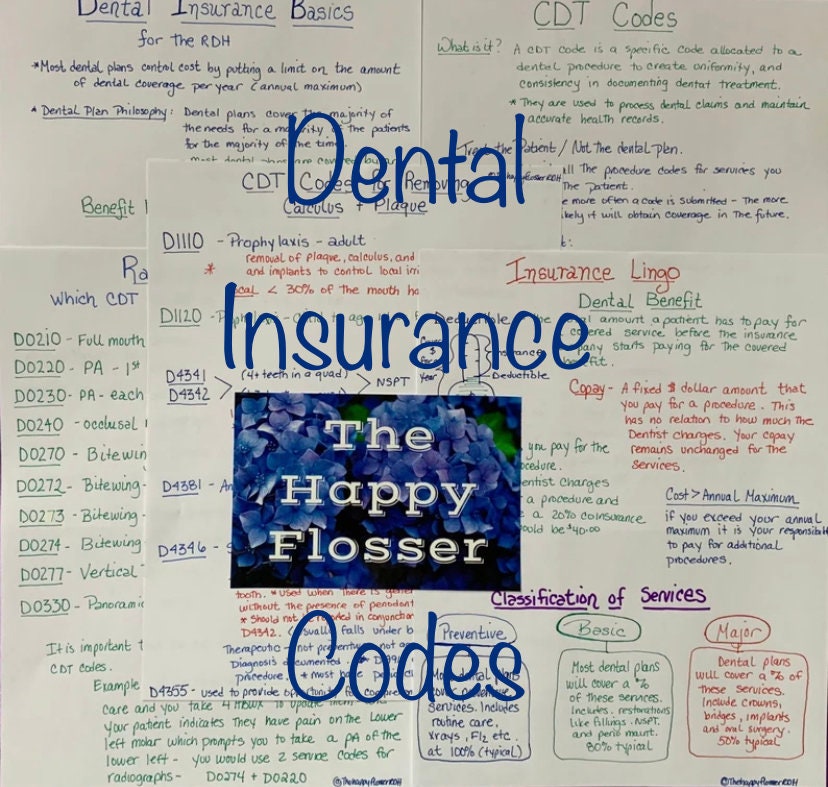 Dental Insurance Basics
for the RDH
*Most dental plans control cost by putting a limit on the amount
of dental coverage per year (annual maximum)
* Dental Plan Philosophy: Dental plans cover the majority of
the needs for a majority of the patients
for the majority of the time
Benefit
CDT Codes
What is it? A CDT code is a specific code allocated to a
dental procedure to create uniformity, and
consistency in documenting dental treatment.
* They are used to process dental claims and maintain
accurate health records.
Treat the Patient / Not the dental plan.
all the procedure codes for services you
the patient.
more often a code is submitted - The more
it will obtain coverage in the future.
Dental
Insurance
Codes
CDT Codes for Removing
Calculus + Plaque
D1110 - Prophylaxis - adult
* removal of plaque, calculus, and
and implants to control local
< 30% of the mouth
D1120 -
D4341
D4342 > (4+ teeth in a quad) > NSPT
D4381 -
D4346 -
The
Happy
Flosser
tooth. *used when there is
without the presence of
* Should not be reported in
D4342. (usually falls under
Therapeutic - not preventative
Diagnosis documented
procedure + most have
D4355 - used to provide
which CDT
D0210 - Full mouth
D0220 - PA - 1st
D0230 - PA - each
D0240 - occlusal
D0270 - Bitewing
D0272 - Bitewing -
D0273 - Bitewing -
D0274 - Bitewing
D0277 - Vertical
D0330 - Panoramic
It is important
CDT codes.
Example
care and you take 4 MBWX to update
your patient indicates they have pain on the lower
left molar which prompts you to take a PA of the
lower left - you would use 2 service codes for
radiographs - D0274 + D0220
@ThehappyflosserRDH
Insurance Lingo
Dental Benefit
Deductible
amount a patient has to pay for
covered service before the insurance
company starts paying for the covered
benefit.
Year
Deductible
Copay - A fixed $ dollar amount that
you pay for a procedure. This
has no relation to how much the
Dentist charges. Your copay
remains unchanged for the
services.
you pay for the
procedure.
dentist charges
a procedure and
a 20% coinsurance
would be $40.00
Cost > Annual Maximum
if you exceed your annual
maximum it is your
to pay for additional
procedures.
Classification of Services
Preventive
services. Includes
routine care,
xrays, Fl2 etc.
at 100% (typical)
Basic
Most dental plans
will cover a %
of these services.
Includes restorations
like fillings, NSPT,
and perio maint.
80% typical
Major
Dental plans
will cover a % of
these services.
Include crowns,
bridges, implants
and oral surgery.
50% typical
©ThehappyflosserRDH